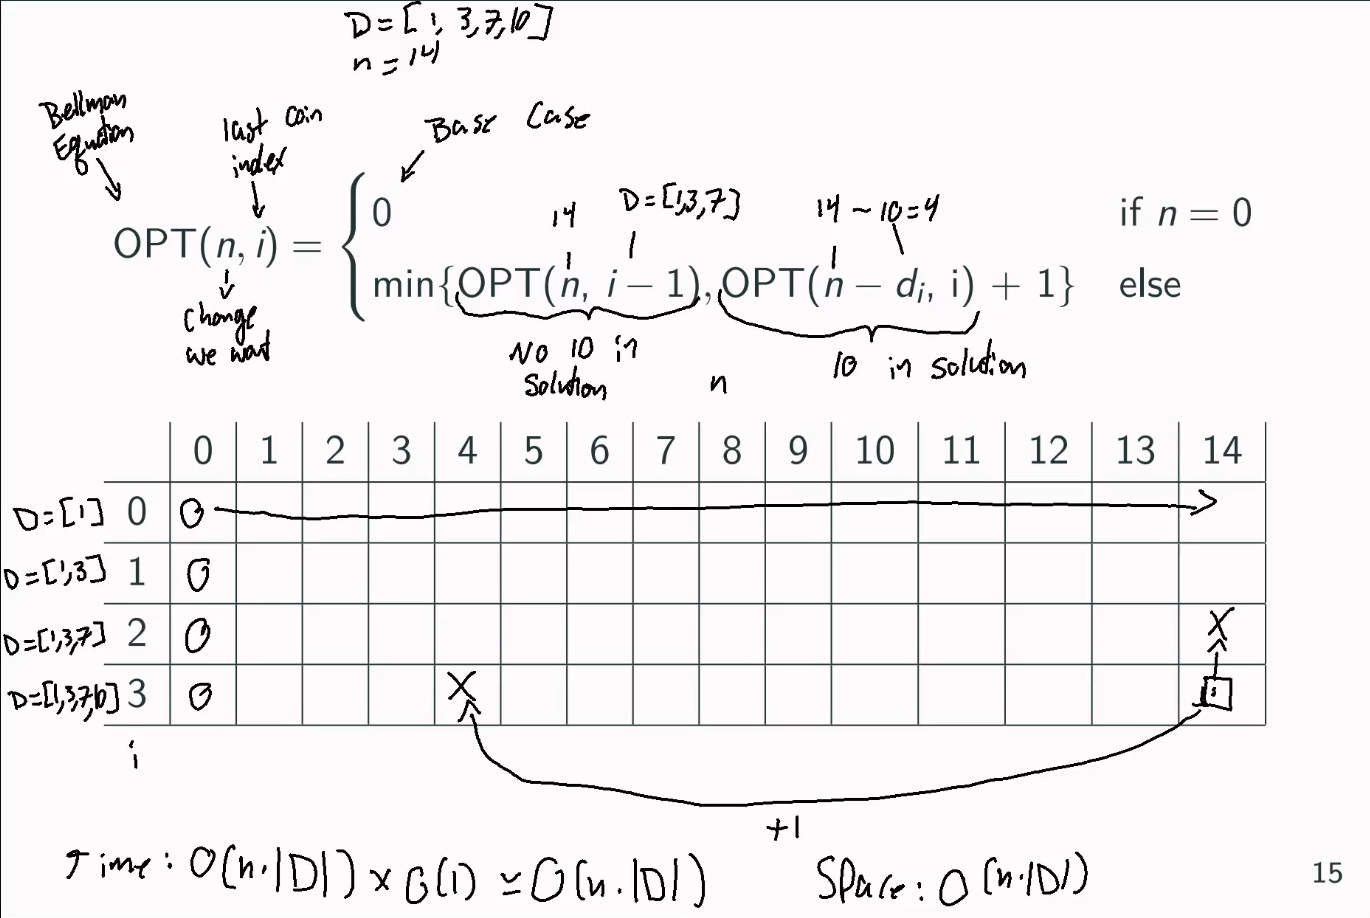 D=[1, 3,7,10]
n=14
Bellman
Equation
last coin
index
Base Case
14
D=[1,3,7]
14-10=4
OPT(n, i) =
0
if n = 0
min{OPT(n, i − 1), OPT(n − dᵢ, i) + 1}
else
change
we want
No 10 in
solution
10 in solution
n
0 1 2 3 4 5 6 7 8 9 10 11 12 13 14
D=[1] 0 0
D=[1,3] 1 0
D=[1,3,7] 2 0 X
D=[1,3,7,10] 3 0 X
i
+1
Time: O(n·|D|) × O(1) ≃ O(n·|D|)
Space: O(n·|D|)
15